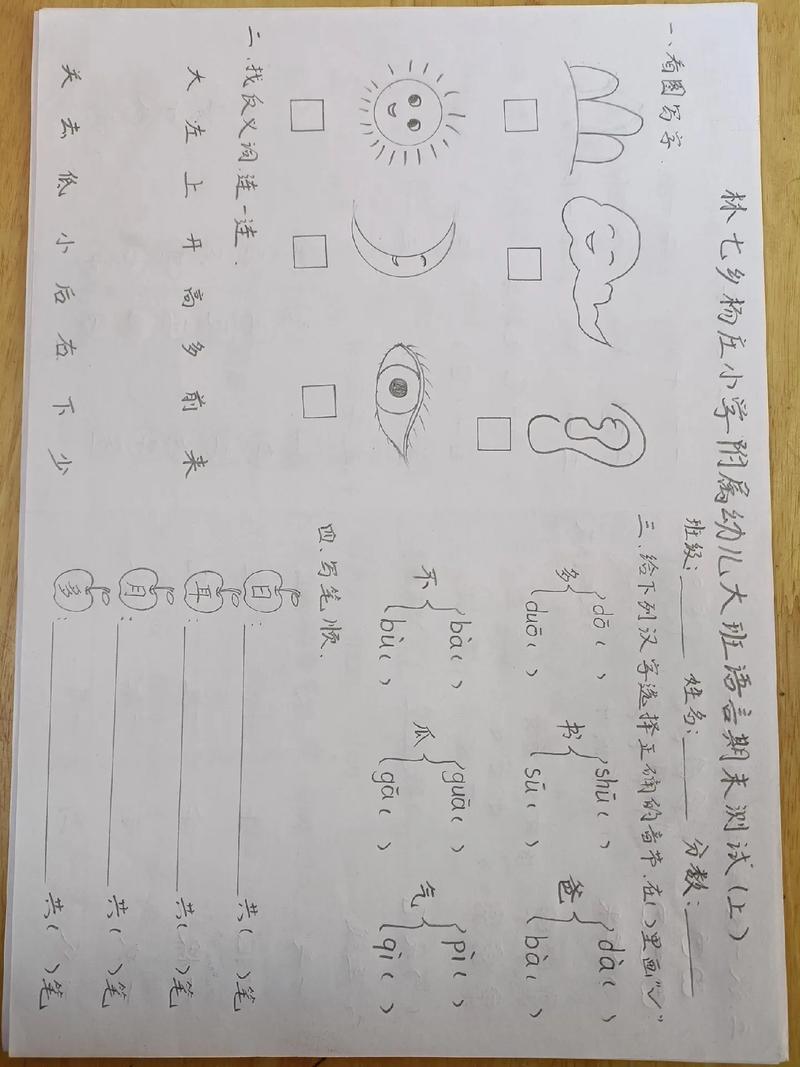 林七乡杨庄小学附属幼儿大班语言期末测试(上)
班级:______ 姓名:______ 分数:______
一、看图写字.
二、找反义词,连一连.
大 左 上 开 高 多 前 来
关 去 低 小 后 右 下 少
三、给下列汉字选择正确的音节,在( )里画"√"
多 { dō( ) duō( )
书 { shū( ) sū( )
爸 { dà( ) bà( )
不 { bà( ) bù( )
瓜 { guā( ) gā( )
气 { pì( ) qì( )
四、写笔顺.
日:______ 共( )笔
耳:______ 共( )笔
月:______ 共( )笔
多:______ 共( )笔